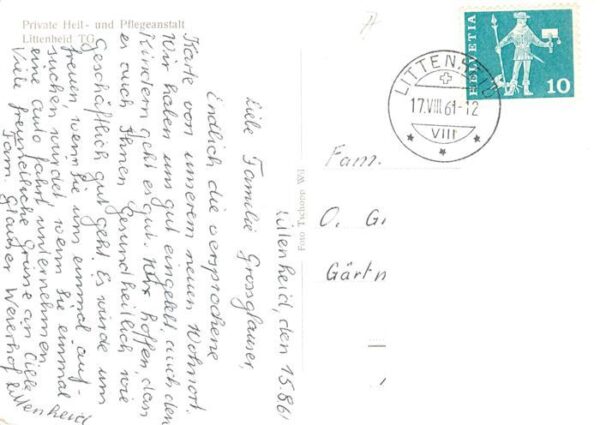 Private Heil- und Pflegeanstalt
Littenheid TG
Littenheid, den 15.8.61
Liebe Familie Grossglauser,
Endlich die versprochene
Karte von unserem neuen Wohnort.
Wir haben uns gut eingelebt, auch den
Kindern geht es gut. Wir hoffen, dass
es auch Ihnen Gesundheitlich wie
Geschäftlich gut geht. Es würde uns
freuen, wenn Sie uns einmal auf-
suchen würdet, wenn Sie einmal
eine Autofahrt unternehmen.
Viele freundliche Grüsse an Alle
Fam. Glauser Weierhof Littenheid
Foto Tschopp Wil
LITTENHEID
17.VIII.61-12
VIII
HELVETIA
10
Fam.
O. G
Gärtn